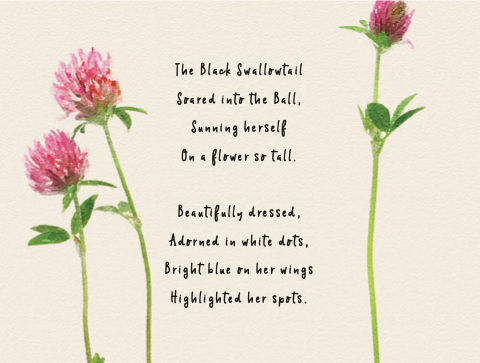 The Black Swallowtail
Soared into the Ball,
Sunning herself
On a flower so tall.

Beautifully dressed,
Adorned in white dots,
Bright blue on her wings
Highlighted her spots.